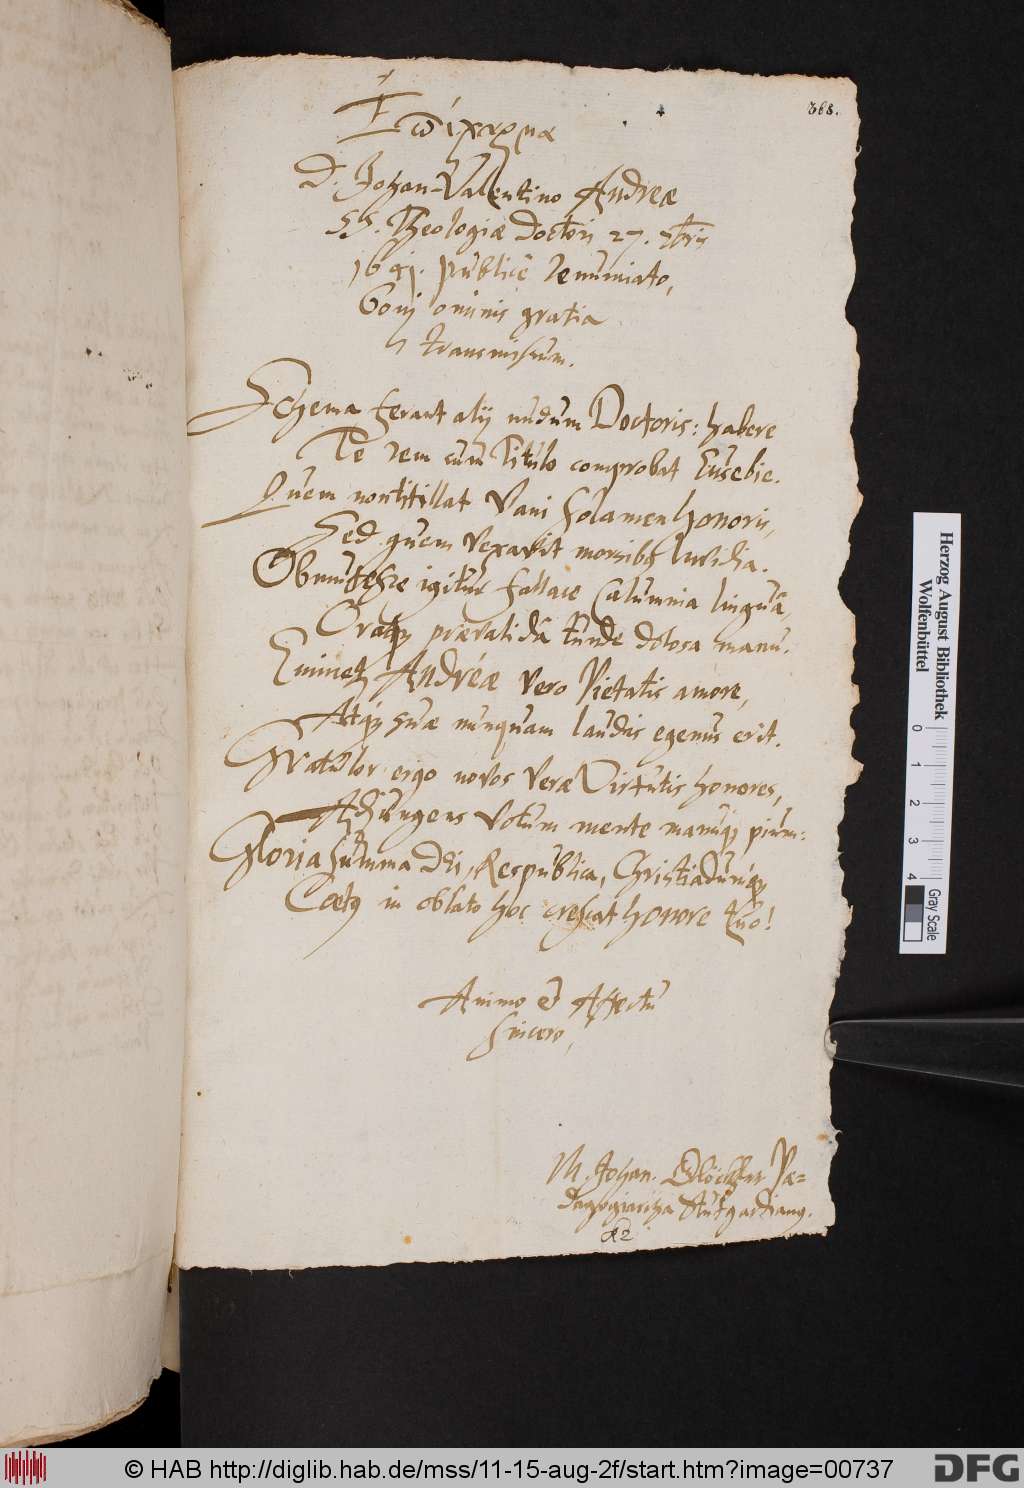 368.
Ἐπίγραμμα
D. Johan-Valentino Andreæ
SS. Theologiæ Doctori 27. 7bris
1641. publicè renunciato,
boni ominis gratia
transmissum.
Schema ferant alij nudum Doctoris: habere
Te rem cum Titulo comprobat Eusebie.
Quem non titillat vani solamen honoris,
Sed quem vexavit morsibq Invidia.
Obmutesce igitur fallace Calumnia linguâ,
Oraq prævalidâ tunde dolosa manu.
Eminet Andreæ vero Pietatis amore,
Atq suæ nunquam laudis egenus erit.
Gratulor ergo novos veræ Virtutis honores,
Adjungens votum mente manuq pium:
Gloria summa Dei, Respublica, Christiadumq
Coetq in oblato hoc crescat honore tuo!
Animo & Affectu
sincero,
M. Johan. Pæ=
dagogiarcha Stutgardianq.
Herzog August Bibliothek
Wolfenbüttel
0 1 2 3 4
Gray Scale
© HAB http://diglib.hab.de/mss/11-15-aug-2f/start.htm?image=00737
DFG